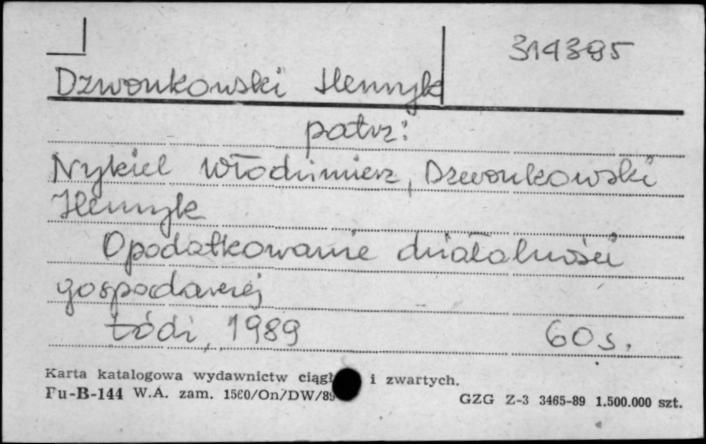 314395
Dzwonkowski Henryk
patrz:
Nykiel Włodzimierz, Dzwonkowski
Henryk
Opodatkowanie działalności
gospodarczej
Łódź, 1989 60 s.
Karta katalogowa wydawnictw ciągł i zwartych.
Pu-B-144 W.A. zam. 1560/On/DW/89 GZG Z-3 3465-89 1.500.000 szt.